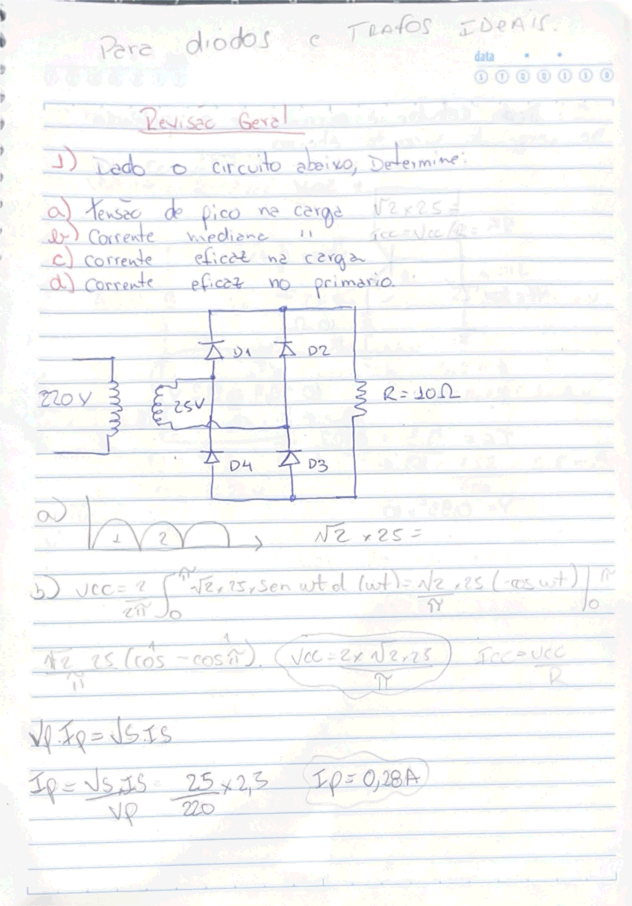 Para diodos e TRAFOS IDEAIS.
data
Revisão Geral
1) Dado o circuito abaixo, Determine:
a) tensão de pico na carga √2 x 25 =
b) Corrente mediana "
c) corrente eficaz na carga
d) corrente eficaz no primario.
D1 D2
220V 25V R = 10Ω
D4 D3
a) 1 2 √2 x 25 =
b) VCC = 2/2π ∫₀^π √2 x 25 x sen wt d (wt) = √2 x 25/π (-cos wt) |₀^π
√2 25/π (cos - cos π). VCC = 2 x √2 x 25/π ICC = VCC/R
Vp.Ip = VS.IS
Ip = VS.IS/Vp 25/220 x 2,5 Ip = 0,28A